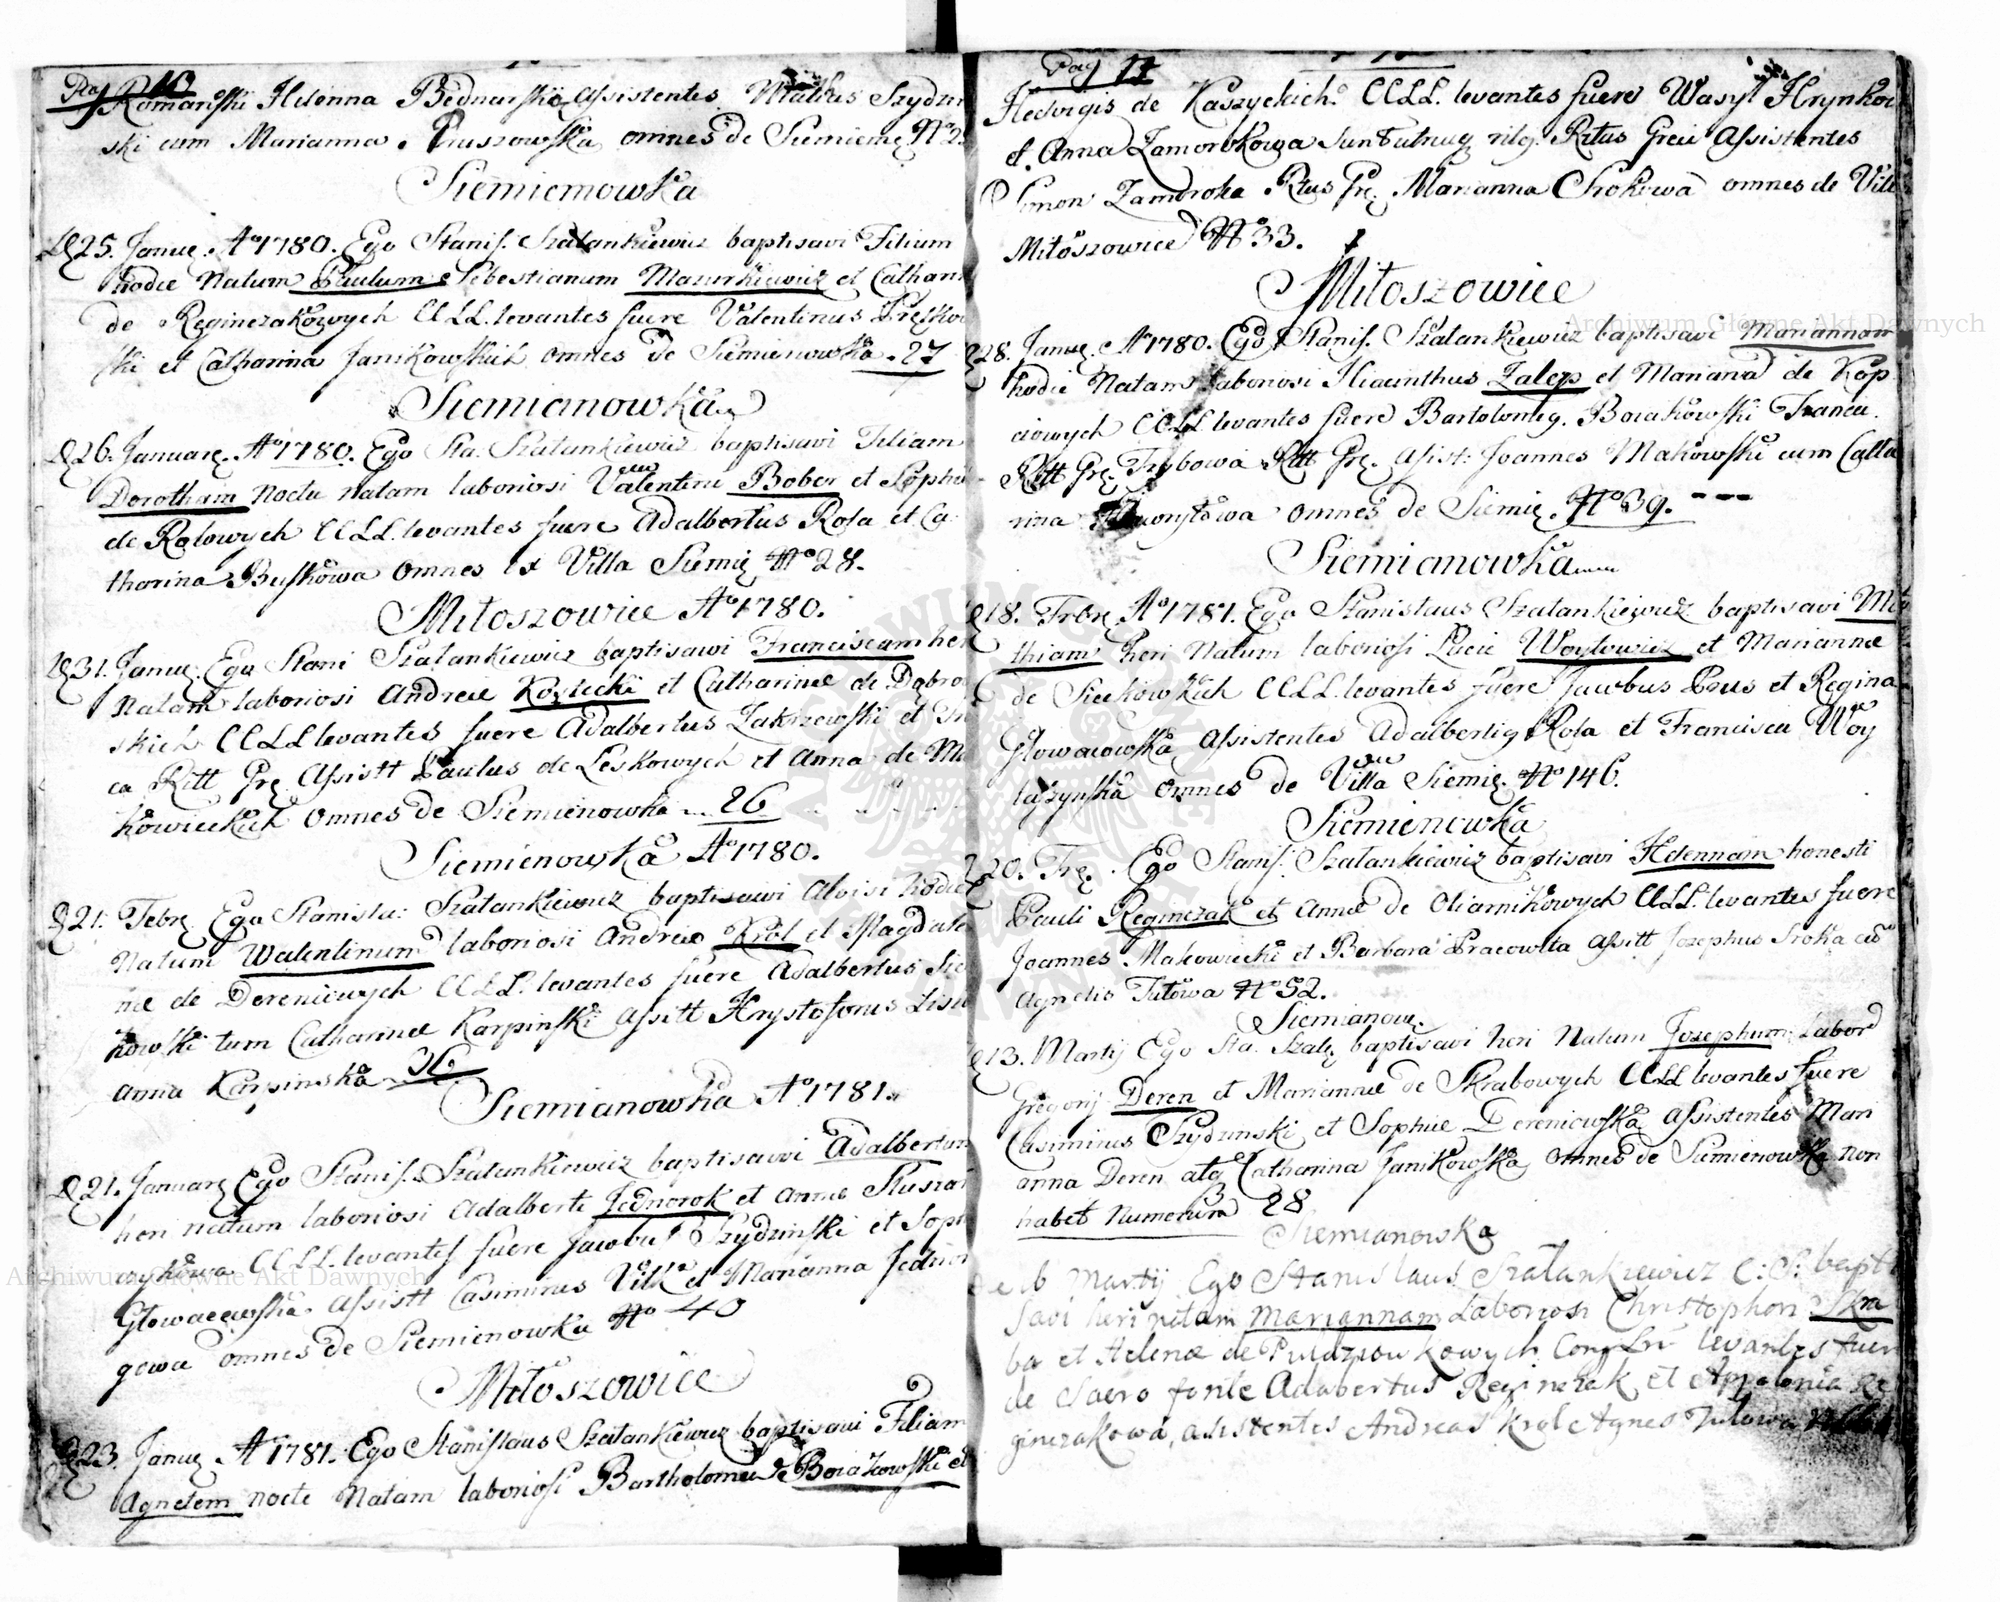 Pag 10
Romański Helenna Bednarska Assistentes Mathus Szydzin
ski cum Marianna Pruszowska omnes de Siemiene No 2
Siemienowka
D 25. Janue. Ao 1780. Ego Stanis. Szatankiewicz baptisavi Filium
hodie Natum Paulum Sebestianum Mazurkiewicz et Cathari
de Reginczakowych CCLL. levantes fuere Valentinus
ski et Catharina Janikowskich omnes de Siemienowka. 27
Siemianowka
D 26. Januare. Ao 1780. Ego Sta. Szatankiewicz baptisavi Filiam
Dorotheam Nocte natam laboriosi Valentini Bober et Sophi
de Rolowych CCLL. levantes fuere Adalbertus Rola et Ca
tharina Buskowa omnes ex Villa Siemie No 28.
Mitoszowice Ao 1780.
D 31. Janue. Ego Stani Szatankiewicz baptisavi Franciscam heri
Natam laboriosi Andreae Kozlecki et Catharinae de Dobro
skich CCLL levantes fuere Adalbertus Zakrzewski et
ca Ritt Gre. Assistt Paulus de Leskowych et Anna de Ma
kowieckich omnes de Siemienowka 26
Siemienowka Ao 1780.
D 21. Febre Ego Stanista: Szatankiewicz baptisavi Aloisi hodie
Natum Walentinum laboriosi Andreae Krol et Magdale
nae de Dereniowych CCLL. levantes fuere Adalbertus Sie
kowski tum Catharinae Karpinski Assitt Hrystoforus
Anna Karpinska 36
Siemianowka Ao 1781.
D 21. Januare Ego Stanis. Szatankiewicz baptisavi Adalbertum
heri natum laboriosi Adalberti Jednorok et Annae
CCLL. levantes fuere Jacobus Szydzinski et Soph
Glowacewska. Assistt Casimirus Vilk et Marianna Jednor
gowa omnes de Siemienowka No 40
Mitoszowice
D 23. Janue Ao 1781. Ego Stanislaus Szatankiewicz baptisavi Filiam
Agnetem nocte Natam laboriosi Bartholomei Boiakowski et
Pag 11
Hedwigis de Kaszyckich. CCLL. levantes fuere Wasyl Hrynkow
et Anna Zamorokowa Ritus Greci Assistentes
Simon Zamoroka Rtus Gre. Marianna Srokowa omnes de Vill
Mitoszowice No 33.
Mitoszowice
D 28. Janue. Ao 1780. Ego Stanis. Szatankiewicz baptisavi Mariannam
hodie Natam laboriosi Hiacinthus Zalep et Mariana de Kop
ciowych CCLL levantes fuere Bartolomeg. Boiakowski Franci.
Ritt Gre. Frybowa Ritt Gre. Assist: Joannes Makowski cum Catta
rina omnes de Siemie. No 39.
Siemianowka
D 18. Febre Ao 1781. Ego Stanislaus Szatankiewicz baptisavi Mat
thiam heri Natum laboriosi Lucie Woytowicz et Mariannae
de Sieckowskich CCLL. levantes fuere Jacobus Prus et Regina
Glowacowska, Assistentes Adalbertig Rola et Francisca Woy
taszynska omnes de Villa Siemie. No 146.
Siemienowka
D 20. Fre. Ego Stanis. Szatankiewicz baptisavi Helennam honesti
Pauli Reginczak et Annae de Oliarnikowych CCLL. levantes fuere
Joannes Makowiecki et Barbara Pracowita Assitt Josephus Sroka cu
Agnetis Tutowa No 52.
Siemianow.
D 13. Martij Ego Sta. Szat. baptisavi heri Natum Josephum Labor
Gregorij Deren et Mariannae de Skrabowych CCLL levantes fuere
Casimirus Szydzinski et Sophie Dereniowska Assistentes Mari
anna Deren atq Catharina Janikowska omnes de Siemienowska non
habet numerum 28
Siemianowska
De 6 Martij Ego Stanislaus Szatankiewicz C: S: bapti
savi heri natam Mariannam Laboriosi Christophori Skra
ba et Helenae de Conj Lni levantes fuer
de Sacro fonte Adabertus Reginczak et Appolonia Re
ginczakowa, asistentes Andreas Krol et Agnes Tutowa
Archiwum Główne Akt Dawnych
Archiwum Główne Akt Dawnych